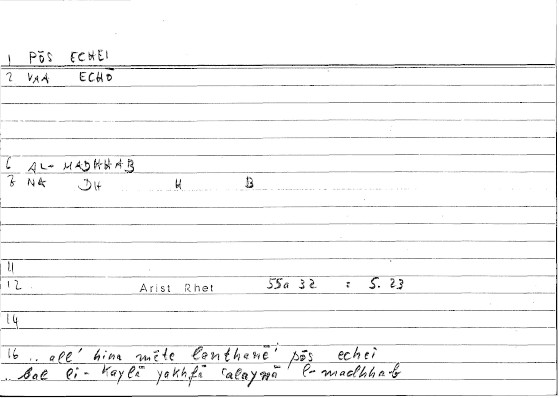 1 PŌS ECHEI
2 VAA ECHŌ
6 AL-MADHHAB
7 NA DH H B
11
12 Arist Rhet 55a 32 = 5. 23
14
16 .. all' hina mēte lanthanē' pōs echei
.. bal li-kaylā yakhfā ʿalaynā l-madhhab